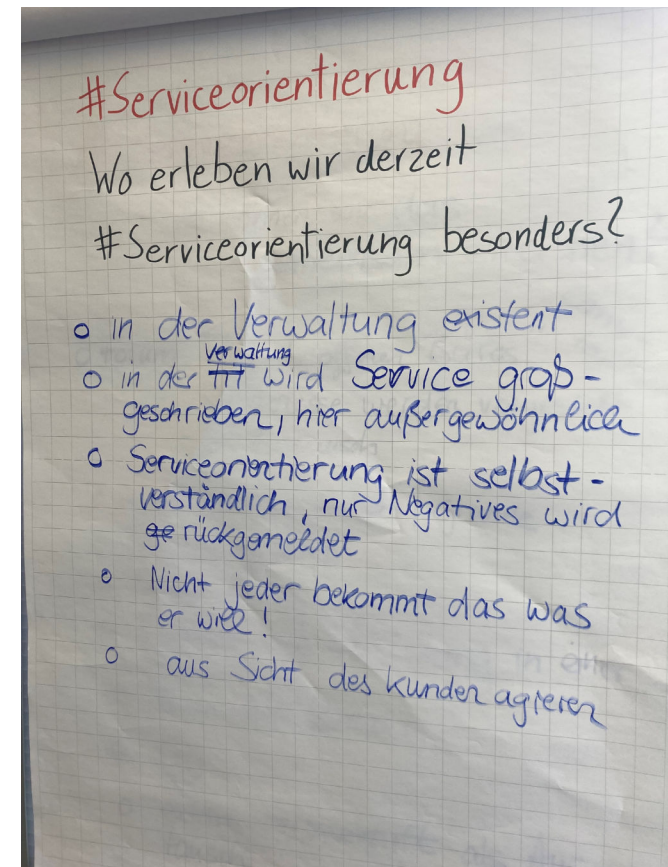 #Serviceorientierung
Wo erleben wir derzeit
#Serviceorientierung besonders?
o in der Verwaltung existent
Verwaltung
o in der TTT wird Service groß-
geschrieben, hier außergewöhnlich
o Serviceorientierung ist selbst-
verständlich, nur Negatives wird
ge rückgemeldet
o Nicht jeder bekommt das was
er will!
o aus Sicht des Kunden agieren